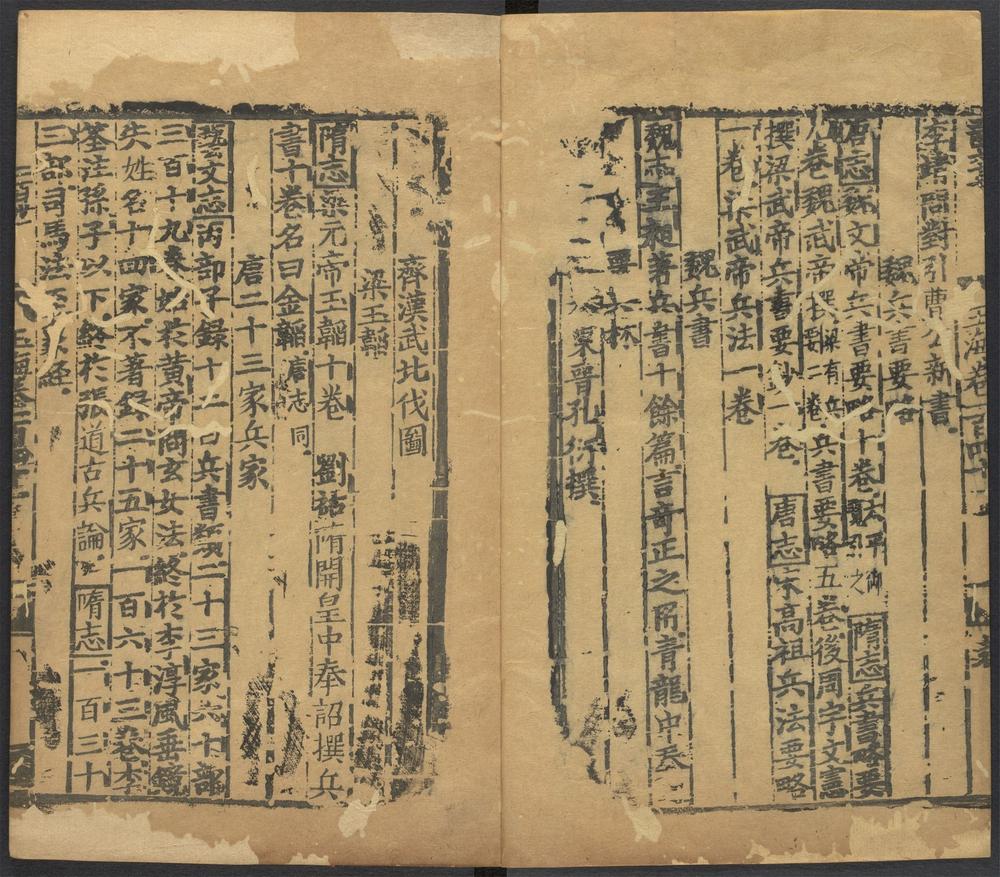 玉海卷一百四十
李靖問對引曹公新書
魏兵書要略
唐志魏文帝兵書要略十卷太平御覽引之 隋志兵書略要
九卷魏武帝撰梁有兵書要略五卷後周宇文憲
撰梁武帝兵書要鈔一卷 唐志宋高祖兵法要略
一卷梁武帝兵法一卷
魏兵書
魏志王昶著兵書十餘篇言奇正之用青龍中奏
兵林
晉孔衍撰
齊漢武北伐圖
梁玉韜
隋志梁元帝玉韜十卷 劉祐隋開皇中奉詔撰兵
書十卷名曰金韜唐志同
唐二十三家兵家
藝文志丙部子錄十二曰兵書類二十三家六十部
三百十九卷始於黃帝問玄女法終於李淳風垂鏡
失姓名十四家不著錄二十五家一百六十三卷李
筌注孫子以下終於張道古兵論 隋志一百三十
三部司馬法至 經